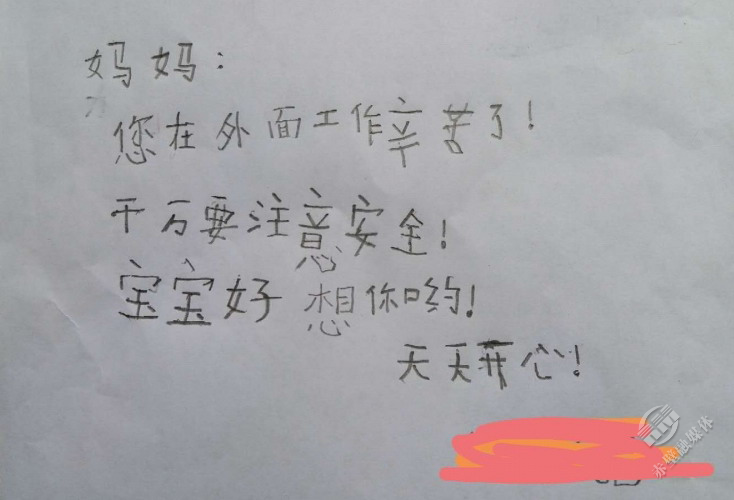 妈妈:
您在外面工作辛苦了!
千万要注意安全!
宝宝好想你哟!
天天开心!
赤壁融媒体